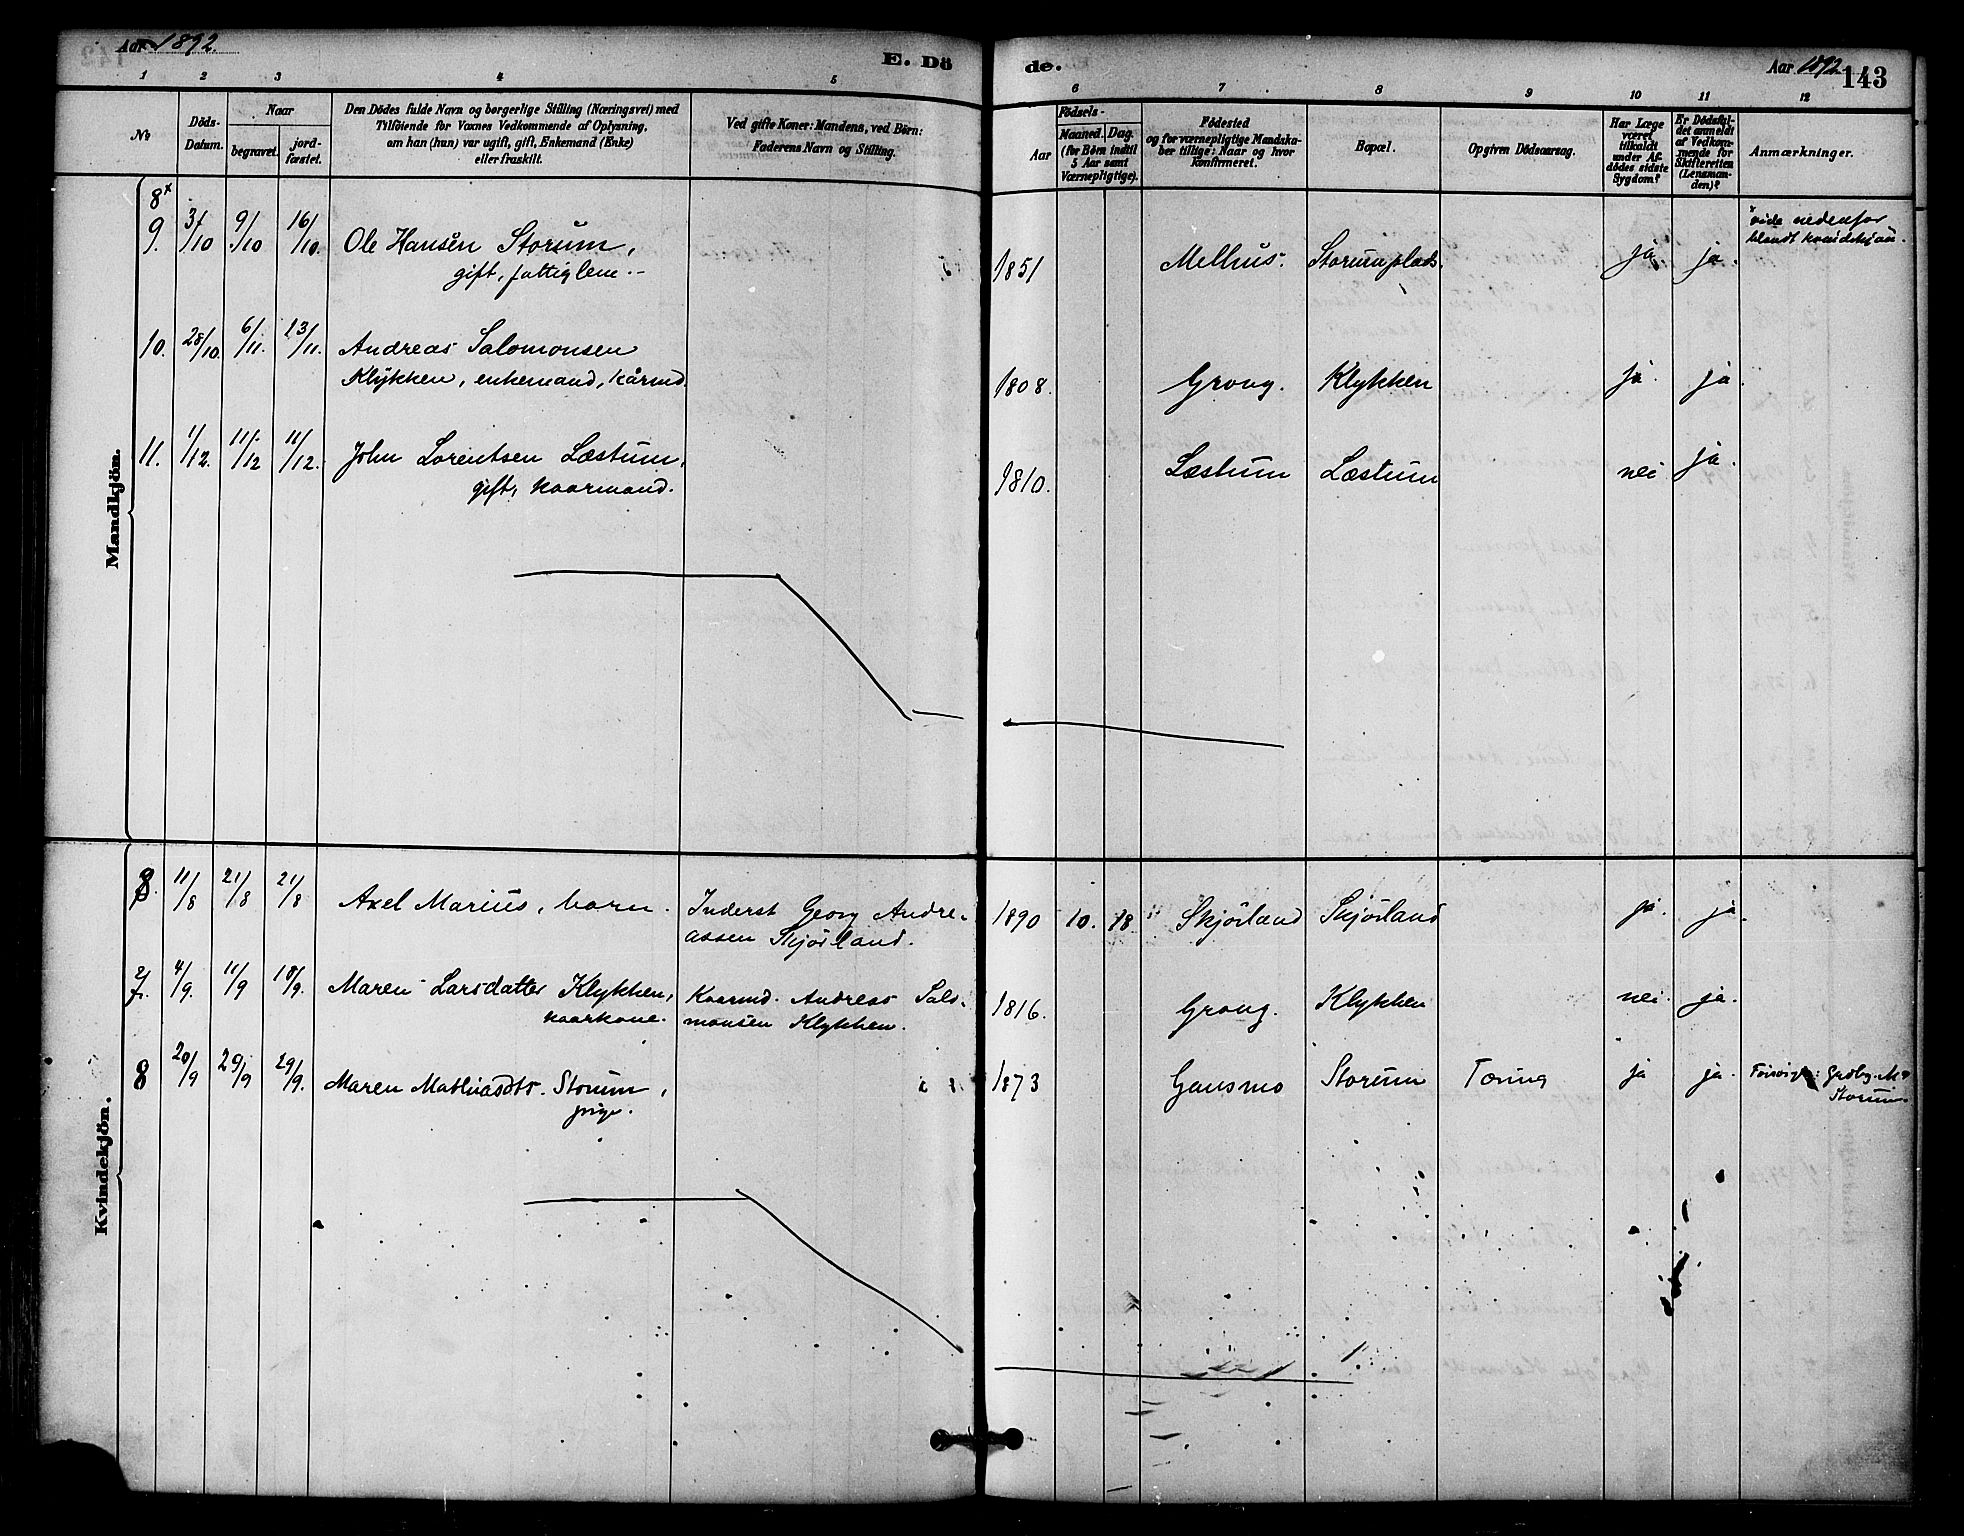 Aar 1892.
E. Dö
de.
Aar 1892 143
1 2 3 4 5
6 7 8 9 10 11 12
No
Döds-
Datum.
Naar
begravet.
jord-
fæstet.
Den Dödes fulde Navn og borgerlige Stilling (Næringsvei) med
Tilföiende for Voxnes Vedkommende af Oplysning,
om han (hun) var ugift, gift, Enkemand (Enke)
eller fraskilt.
Ved gifte Koner: Mandens, ved Börn:
Faderens Navn og Stilling.
Födsels-
Aar
Maaned. Dag.
(for Börn indtil
5 Aar samt
Værnepligtige).
Födested
og for værnepligtige Mandska-
ber tillige: Naar og hvor
Konfirmeret.
Bopæl.
Opgiven Dödsaarsag.
Har Læge
været
tilkaldt
under Af-
dödes sidste
Sygdom?
Er Dödsfal-
det anmeldt
af Vedkom-
mende for
Skifteretten
(Lensman-
den)?
Anmærkninger.
Mandkjön.
8x
vide nedenfor
blandt kvindekjön.
9. 3/10 9/10 16/10. Ole Hansen Storum, 1851 Melhus. Storumplads. ja. ja.
gift, fattiglem.
10. 28/10. 6/11. 13/11. Andreas Salomonsen 1808. Grong. Klykken ja. ja.
Klykken, enkemand, kårmd.
11. 1/12. 11/12 11/12. John Lorentsen Læstum, 1810. Læstum Læstum nei ja.
gift, kaarmand.
Kvindekjön.
8. 11/8 21/8 21/8 Axel Marius, barn. Inderst Georg Andre- 1890 10. 18 Skjörland Skjörland ja. ja.
assen Skjörland.
7. 4/9. 11/9 18/9. Maren Larsdatter Klykken, Kaarmd. Andreas Salo- 1816. Grong. Klykken nei. ja.
kaarkone. monsen Klykken.
8 20/9 29/9 29/9. Maren Mathiasdtr. Storum, 1873 Gansmo Storum Tæring ja ja.
pige. Storum